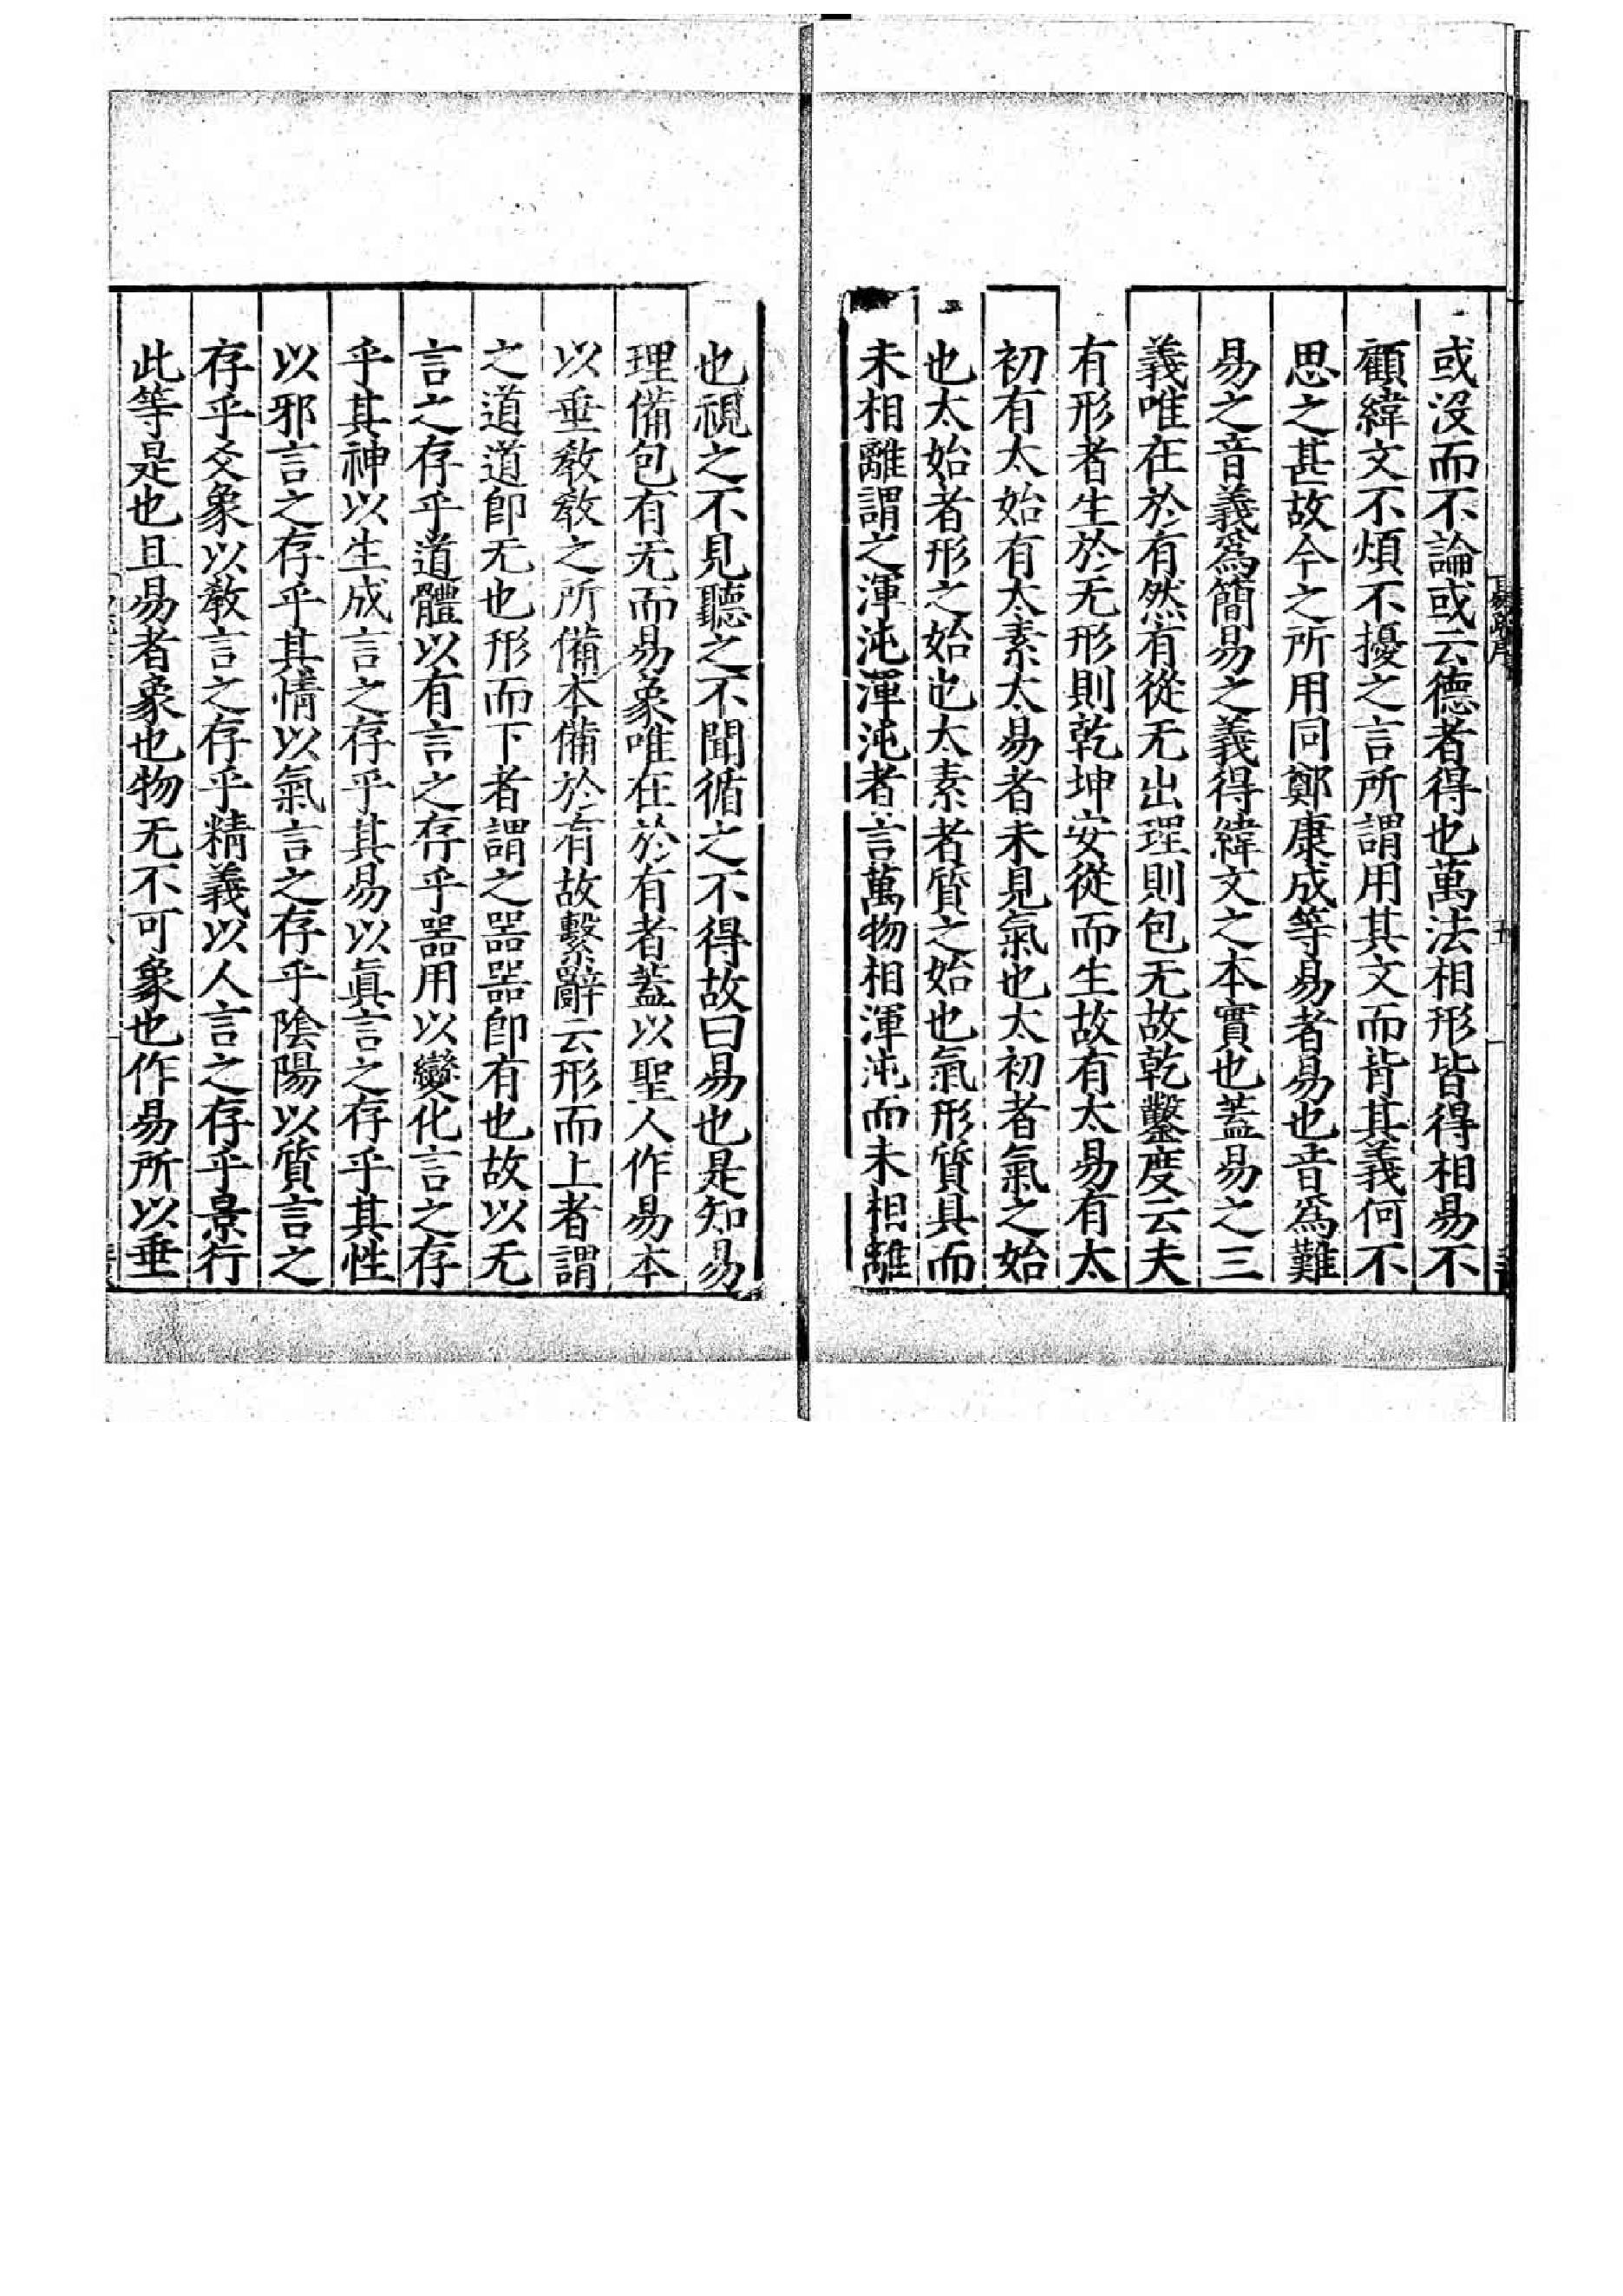 或沒而不論或云德者得也萬法相形皆得相易不
顧緯文不煩不擾之言所謂用其文而背其義何不
思之甚故今之所用同鄭康成等易者易也音爲難
易之音義爲簡易之義得緯文之本實也蓋易之三
義唯在於有然有從无出理則包无故乾鑿度云夫
有形者生於无形則乾坤安從而生故有太易有太
初有太始有太素太易者未見氣也太初者氣之始
也太始者形之始也太素者質之始也氣形質具而
未相離謂之渾沌渾沌者言萬物相渾沌而未相離
也視之不見聽之不聞循之不得故曰易也是知易
理備包有无而易象唯在於有者蓋以聖人作易本
以垂敎敎之所備本備於有故繫辭云形而上者謂
之道道即无也形而下者謂之器器即有也故以无
言之存乎道體以有言之存乎器用以變化言之存
乎其神以生成言之存乎其易以眞言之存乎其性
以邪言之存乎其情以氣言之存乎陰陽以質言之
存乎爻象以敎言之存乎精義以人言之存乎景行
此等是也且易者象也物无不可象也作易所以垂